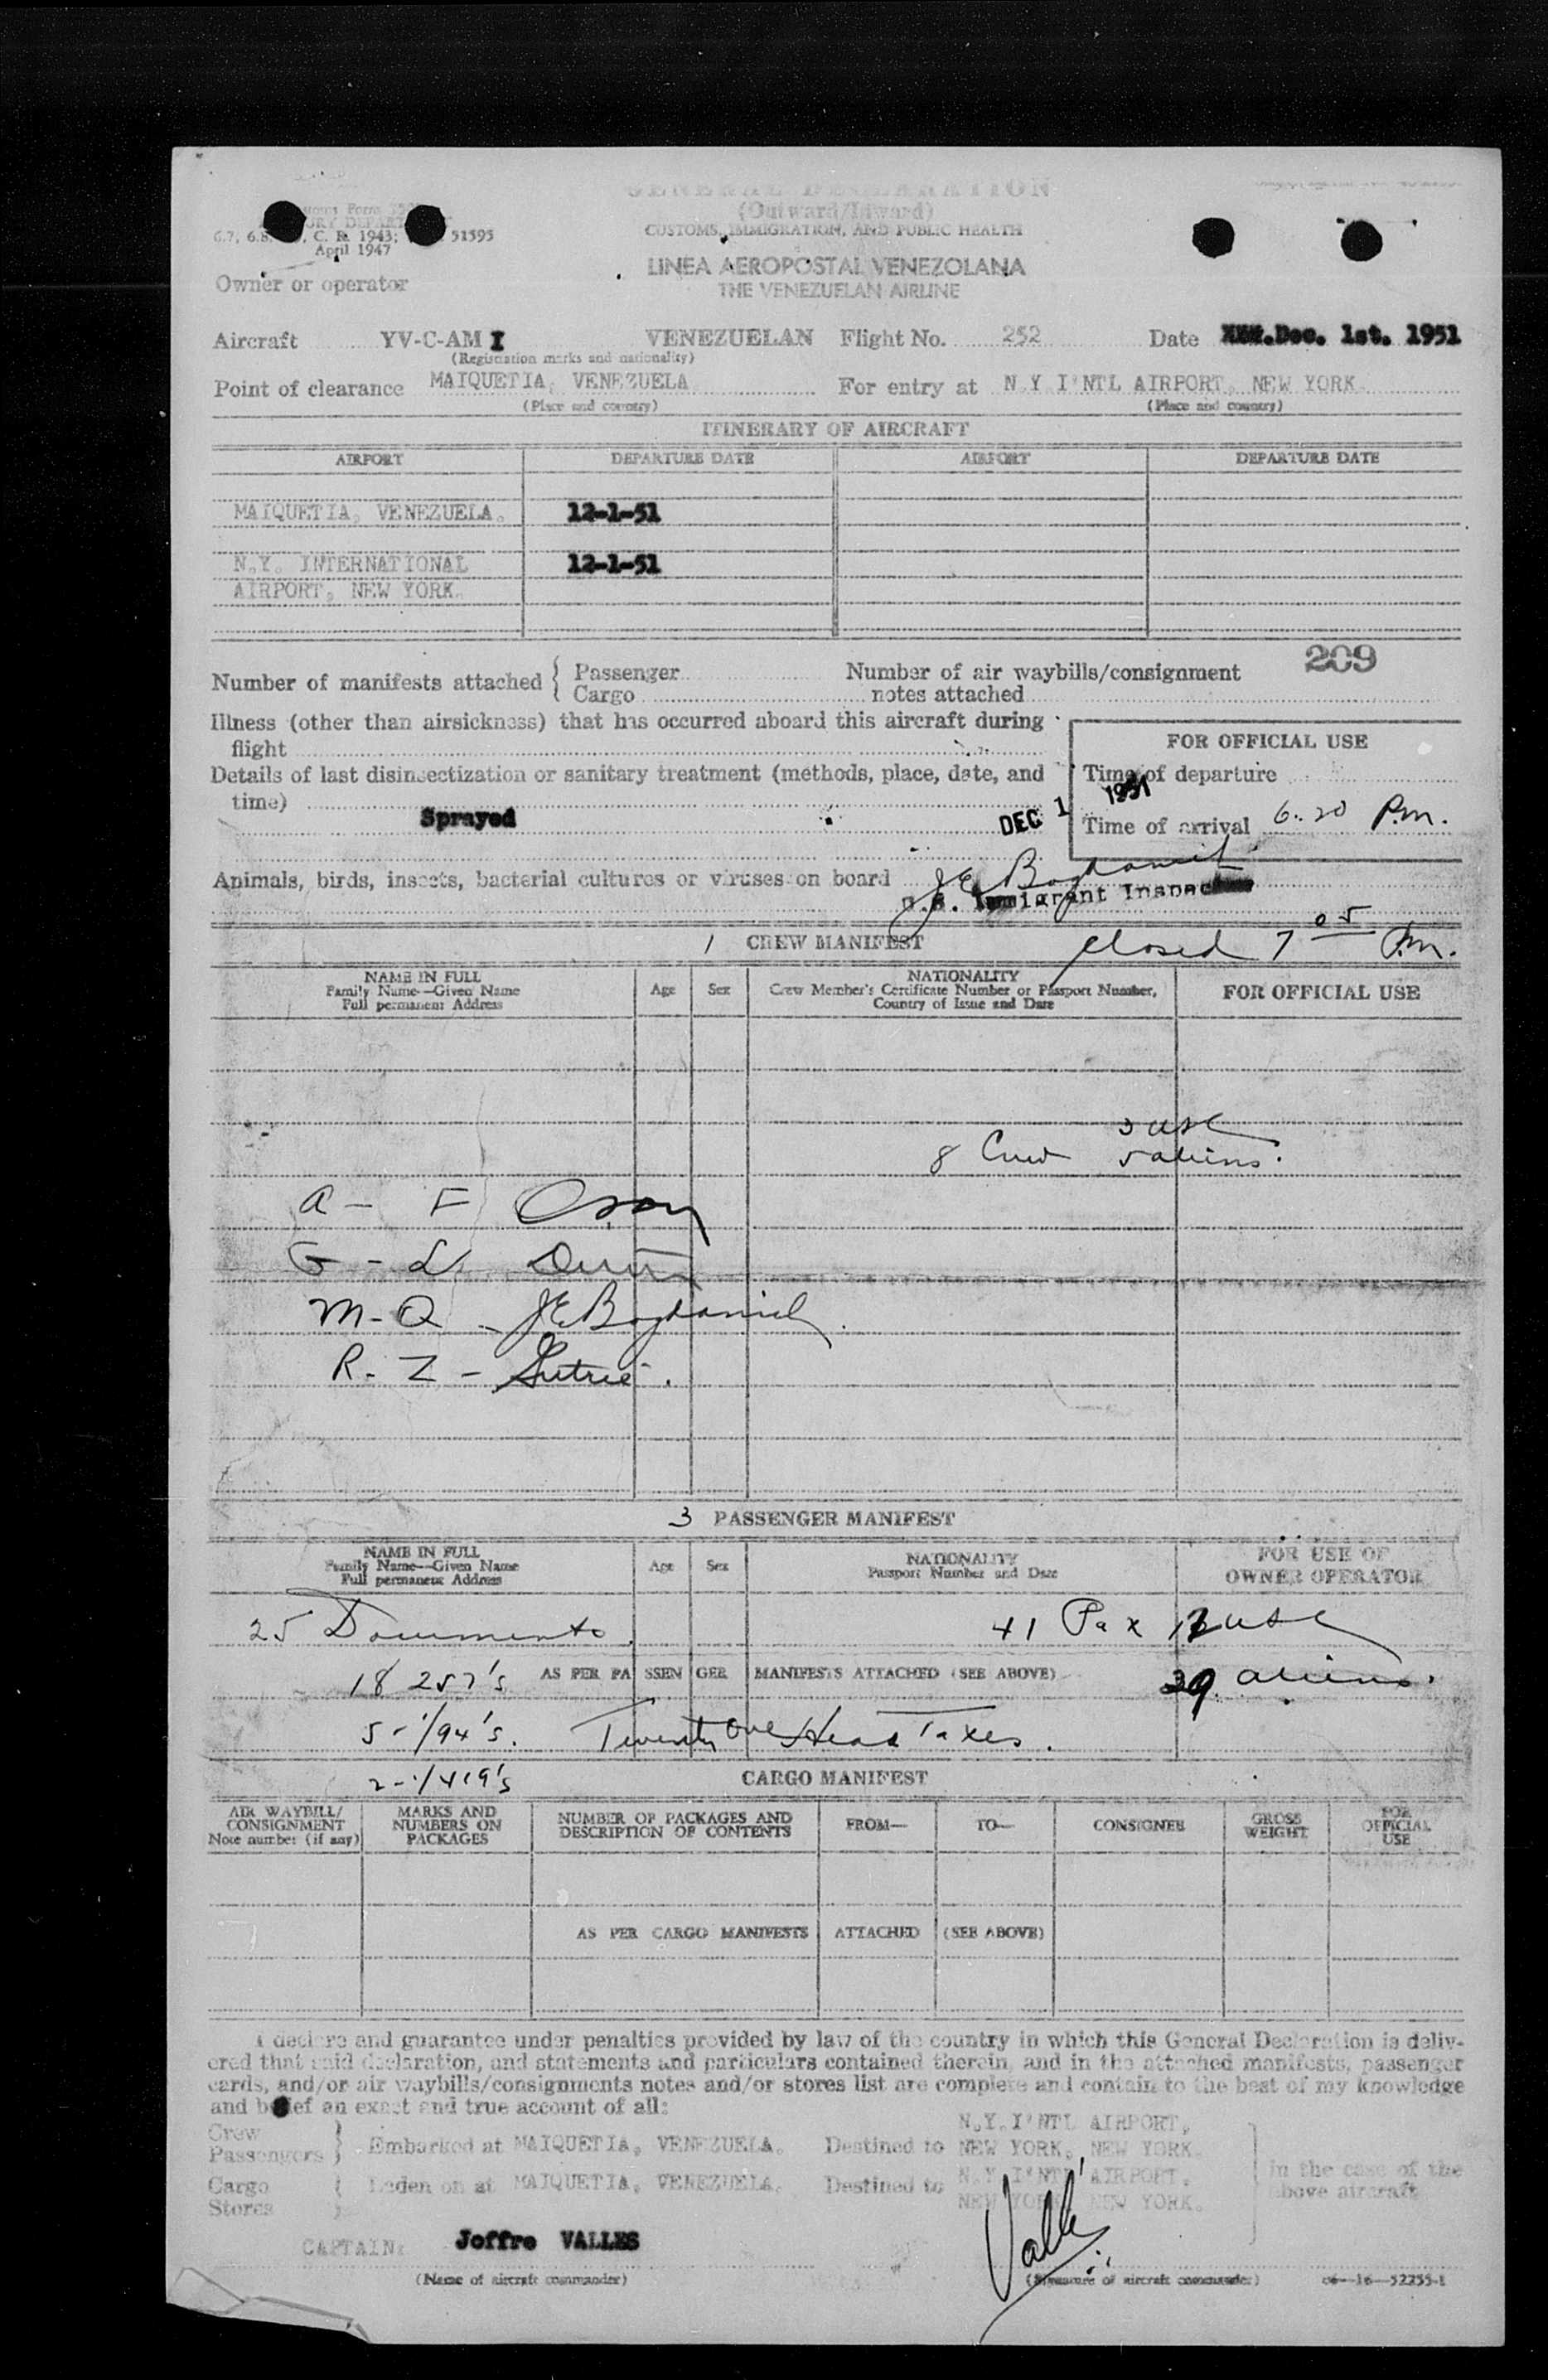 GENERAL DECLARATION
(Outward/Inward)
CUSTOMS, IMMIGRATION, AND PUBLIC HEALTH
6.7, 6.8, C. R. 1943; 51595
April 1947
LINEA AEROPOSTAL VENEZOLANA
THE VENEZUELAN AIRLINE
Owner or operator
Aircraft YV-C-AM I VENEZUELAN Flight No. 252 Date Dec. 1st. 1951
(Registration marks and nationality)
Point of clearance MAIQUETIA, VENEZUELA For entry at N Y I'NTL AIRPORT, NEW YORK.
(Place and country) (Place and country)
ITINERARY OF AIRCRAFT
AIRPORT DEPARTURE DATE AIRPORT DEPARTURE DATE
MAIQUETIA, VENEZUELA. 12-1-51
N.Y. INTERNATIONAL 12-1-51
AIRPORT, NEW YORK.
209
Number of manifests attached { Passenger Number of air waybills/consignment
Cargo notes attached
Illness (other than airsickness) that has occurred aboard this aircraft during
flight
FOR OFFICIAL USE
Details of last disinsectization or sanitary treatment (methods, place, date, and
time)
Time of departure
Sprayed
DEC 1 1951
Time of arrival 6.20 P.m.
Animals, birds, insects, bacterial cultures or viruses on board
U.S. Immigrant Inspector
1 CREW MANIFEST closed 7 05 P.m.
NAME IN FULL
Family Name—Given Name
Full permanent Address
Age Sex
NATIONALITY
Crew Member's Certificate Number or Passport Number,
Country of Issue and Date
FOR OFFICIAL USE
3 USC
8 Crew 5 aliens.
A - F
G - L
M - Q - JE Bogdanich
R - Z -
3 PASSENGER MANIFEST
NAME IN FULL
Family Name—Given Name
Full permanent Address
Age Sex
NATIONALITY
Passport Number and Date
FOR USE OF
OWNER OPERATOR
25 Documents. 41 Pax 12 USC
18 257's AS PER PASSENGER MANIFESTS ATTACHED (SEE ABOVE) 29 aliens.
5 - 1/94's. Twenty one Head Taxes.
2 - 1/419's
CARGO MANIFEST
AIR WAYBILL/
CONSIGNMENT
Note number (if any)
MARKS AND
NUMBERS ON
PACKAGES
NUMBER OF PACKAGES AND
DESCRIPTION OF CONTENTS
FROM— TO— CONSIGNEE
GROSS
WEIGHT
FOR
OFFICIAL
USE
AS PER CARGO MANIFESTS ATTACHED (SEE ABOVE)
I declare and guarantee under penalties provided by law of the country in which this General Declaration is deliv-
ered that said declaration, and statements and particulars contained therein, and in the attached manifests, passenger
cards, and/or air waybills/consignments notes and/or stores list are complete and contain to the best of my knowledge
and belief an exact and true account of all:
Crew
Passengers } Embarked at MAIQUETIA, VENEZUELA. Destined to N.Y.I'NTL AIRPORT,
NEW YORK, NEW YORK.
Cargo
Stores } Laden on at MAIQUETIA, VENEZUELA. Destined to N.Y.I'NTL AIRPORT.
NEW YORK. NEW YORK.
in the case of the
above aircraft
CAPTAIN: Joffre VALLES
Valles
(Name of aircraft commander) (Signature of aircraft commander) 16—52255-1